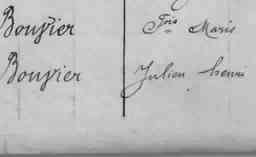 Bouvier Fois Marie
Bouvier Julien henri